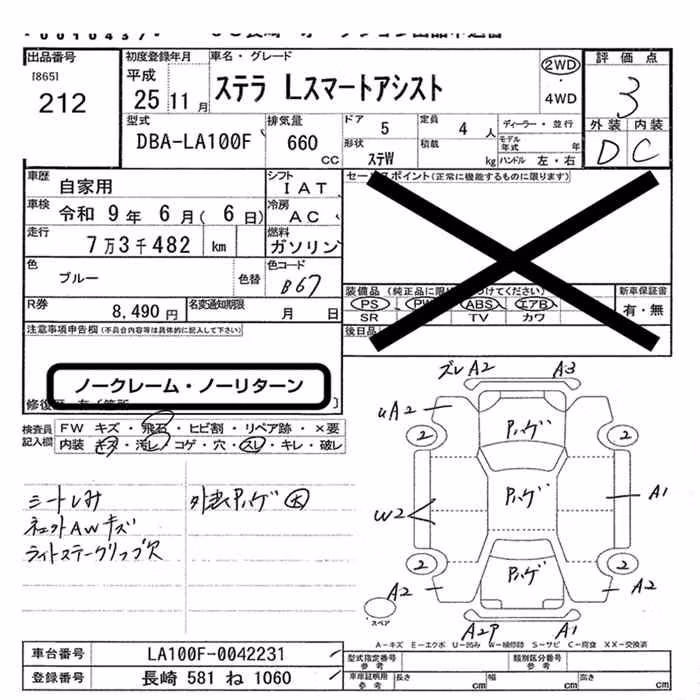 出品番号
[865]
212
初度登録年月
平成
25 11 月
車名・グレード
ステラ Lスマートアシスト
2WD
4WD
評価点
3
外装 内装
D C
型式
DBA-LA100F
排気量
660
cc
ドア
5
定員
4 人
ディーラー・並行
モデル年式 年
形状
ステW
積載
kg
ハンドル 左・右
車歴
自家用
シフト
IAT
セー スポイント(正常に機能するものに限ります)
車検
令和 9年 6月( 6日)
冷房
AC
走行
7万3千482 km
燃料
ガソリン
色
ブルー
色替
色コード
B67
装備品(純正品に限 つけてください)
PS PW ABS エアB
SR TV カワ
新車保証書
有・無
R券
8,490 円
名変通知期限
月 日
後日品
注意事項申告欄(不具合内容等は具体的に記入して下さい)
ノークレーム・ノーリターン
検査員記入欄
FW キズ・飛石・ヒビ割・リペア跡・×要
内装 キズ・汚レ・コゲ・穴・スレ・キレ・破レ
シートしみ
外装ハゲ 大
AWキズ
ズレA2 A3
uA2
2 2
ハゲ
ハゲ
ハゲ
W2
A1
2 2
A2 A2
A2P A1
スペア
A-キズ E-エクボ U-凹み W-補修跡 S-サビ C-腐食 XX-交換済
車台番号
LA100F-0042231
型式指定番号
参考
類別区分番号
参考
登録番号
長崎 581 ね 1060
車庫証明用
参考
長さ cm
幅 cm
高さ cm